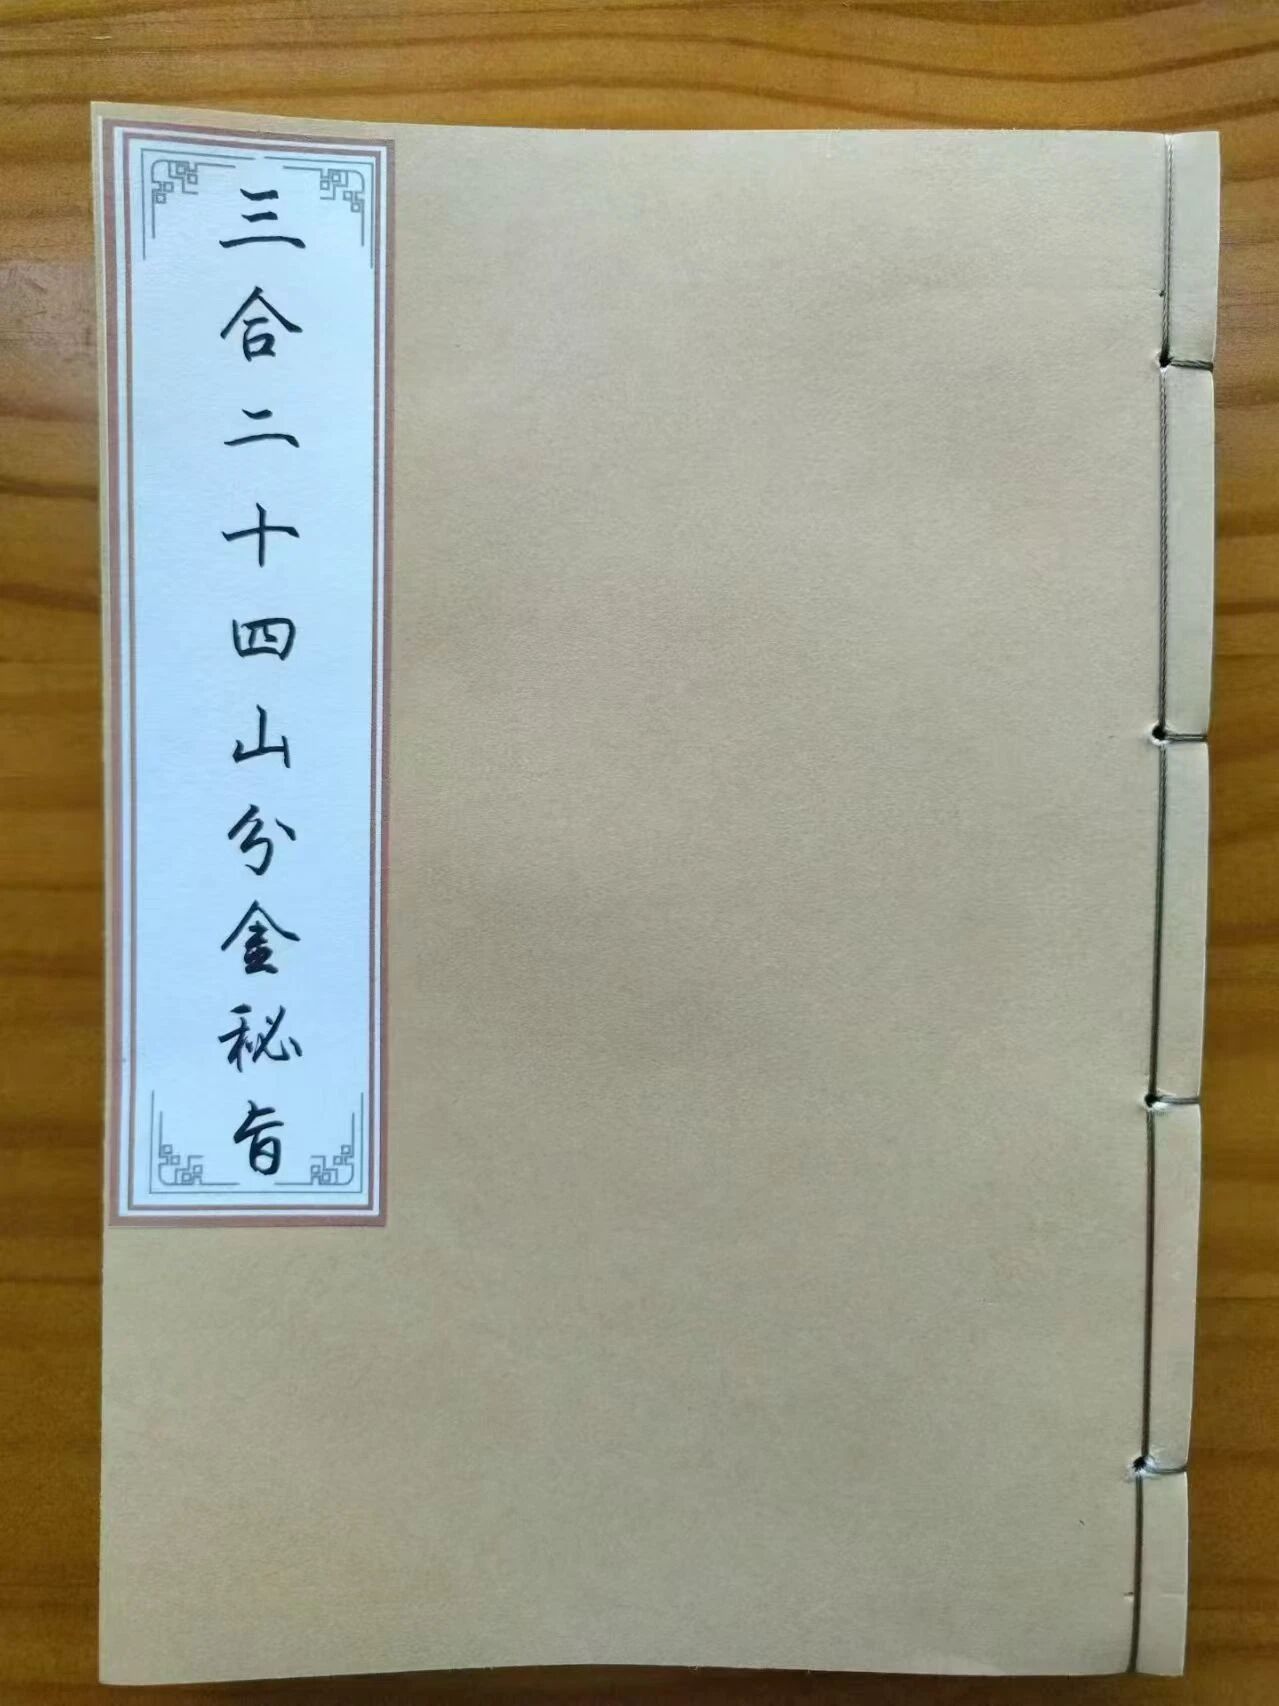 三合二十四山分金秘旨